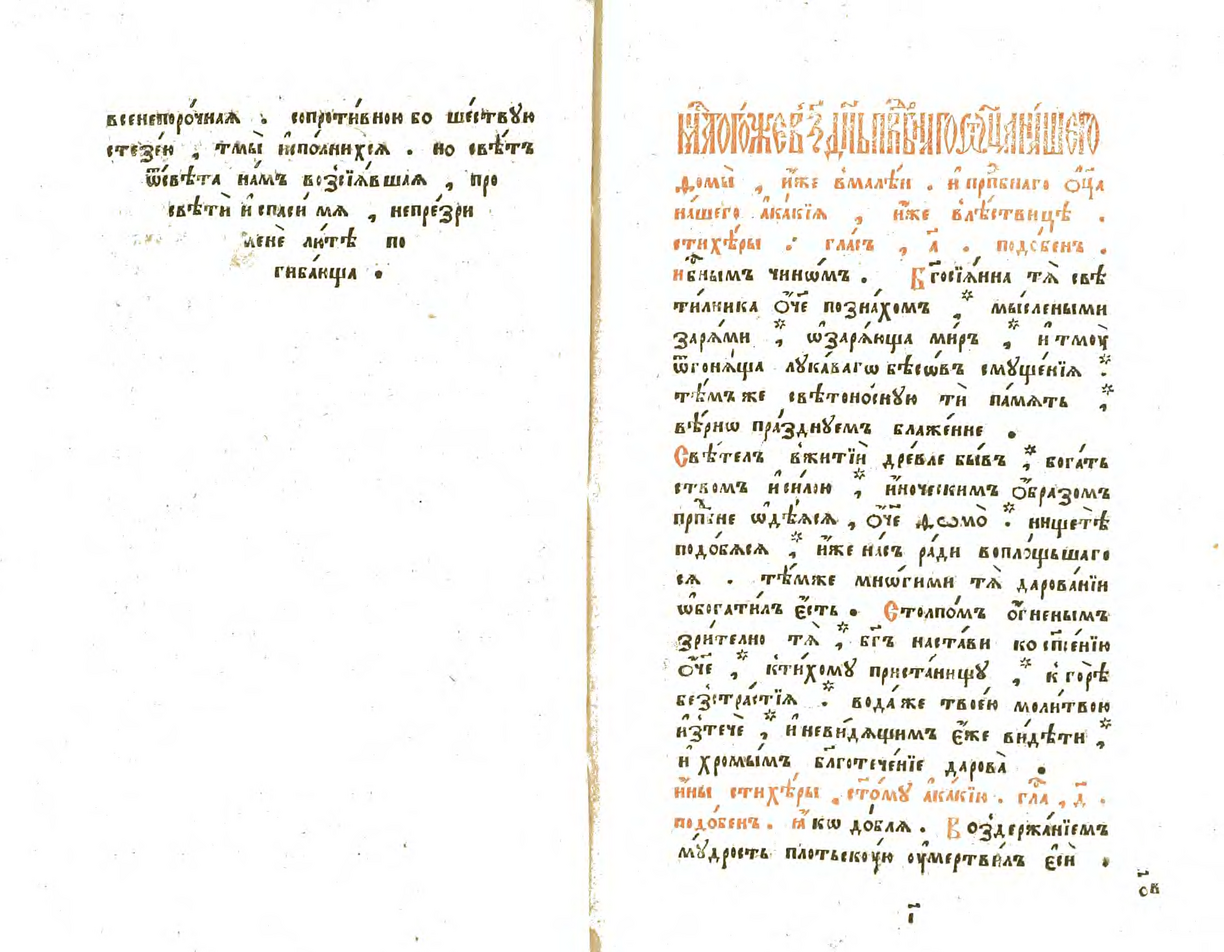 всенепоро́чнаѧ . сопроти́вною бо ше́ствꙋю
стезе́ю , тмы̀ и҆спо́лнихсѧ . но свѣ́тъ
ѿсвѣ́та на́мъ возсїѧ́вшаѧ , про
свѣтѝ и҆ спаси́ мѧ , непре́зри
менѐ лю́тѣ по
гиба́юща .
мц҃а тогѡ́же в з҃ дн҃ь прпⷣбнагѡ ѻ҆ц҃а на́шегѡ
домы̀ , и҆́же вмале́и . и҆ прпⷣбнаго ѻ҆ц҃а
на́шего а҆ка́кїѧ , и҆́же влѣ́ствицѣ .
стихѣ́ры : гла́съ , д҃ . подо́бенъ .
нбⷭ҇нымъ чи́нѡмъ . Бг҃осїѧ́нна тѧ̀ свѣ
ти́лника ѻ҆́ч҃е позна́хомъ ,* мы́слеными
зарѧ́ми ,* ѡ҆зарѧ́юща ми́ръ ,* и҆ тмоу̀
ѿгонѧ́ща лука́вагѡ бѣсѡ́въ смуще́нїѧ :*
тѣ́мъ же свѣтоно́сную тѝ па́мѧть ,*
вѣ́рнѡ пра́зднуемъ блаже́нне .
Свѣ́телъ вжитїѝ дре́вле бы́въ ,* бога́тъ
ствомъ и҆ си́лою ,* и҆́ноческимъ ѻ҆́бразомъ
прпⷣбне ѡ҆дѣ́ѧсѧ , ѻ҆́ч҃е дѡмо̀ :* нищетѣ̀
подо́бѧсѧ ,* и҆́же на́съ ра́ди вопло́щьшаго
сѧ . тѣ́мже мнѡ́гими тѧ̀ дарова́нїи
ѡ҆богати́лъ є҆́сть . Столпо́мъ ѻ҆́гненымъ
зри́телно тѧ̀ ,* бг҃ъ наста́ви ко сп҃се́нїю
ѻ҆́ч҃е ,* кти́хому приста́нищу ,* к го́рѣ
безстра́стїѧ :* вода́ же твое́ю моли́твою
и҆зтечѐ ,* и҆ неви́дѧщимъ є҆́же ви́дѣти ,*
и҆ хромы́мъ бл҃готече́нїе дарова̀ .
и҆́ны стихѣ́ры , ст҃о́му а҆ка́кїю . гла́ , д҃ .
подо́бенъ . ꙗ҆́кѡ до́блѧ . Воздержа́нїемъ
му́дрость пло́тьскоую оу҆мертви́лъ є҆сѝ .
і҃
ов҃